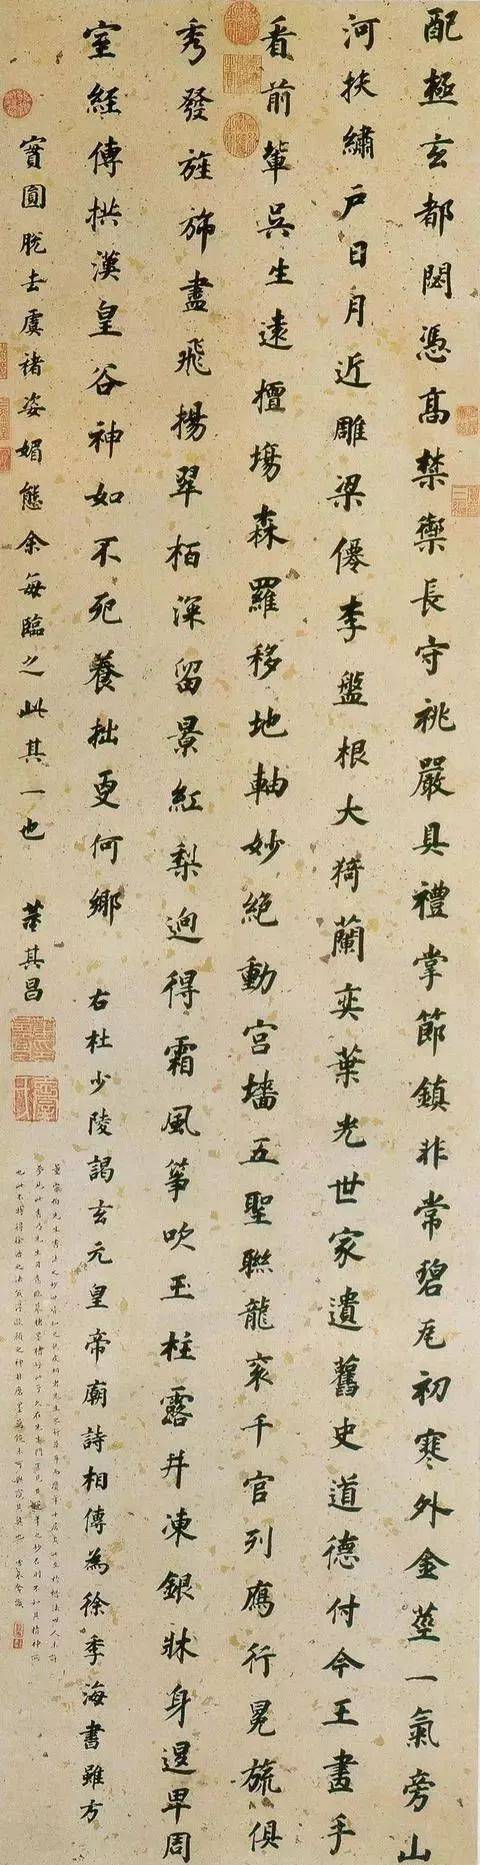 配極玄都閟憑高禁禦長守祧嚴具禮掌節鎮非常碧瓦初寒外金莖一氣旁山
河扶繡戶日月近雕梁僊李盤根大猗蘭奕葉光世家遺舊史道德付今王畫手
看前輩吳生遠擅場森羅移地軸妙絕動宮墻五聖聯龍衮千官列鴈行冕旒俱
秀發旌旆盡飛揚翠栢深留景紅梨迥得霜風箏吹玉柱露井凍銀牀身退卑周
室經傳拱漢皇谷神如不死養拙更何鄉 右杜少陵謁玄元皇帝廟詩相傳為徐季海書雖方
實圓脫去虞褚姿媚態余每臨之此其一也 董其昌